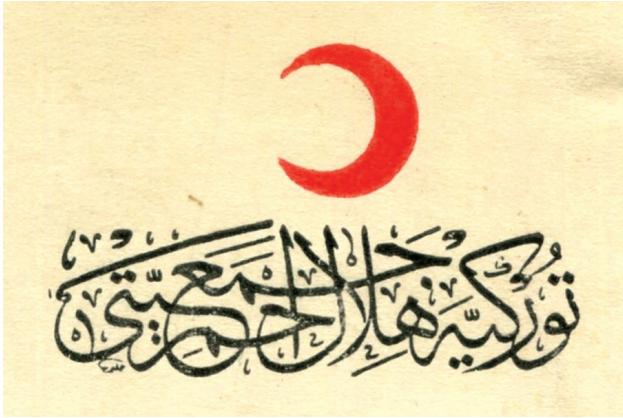 توركيه هلال احمر جمعيتى